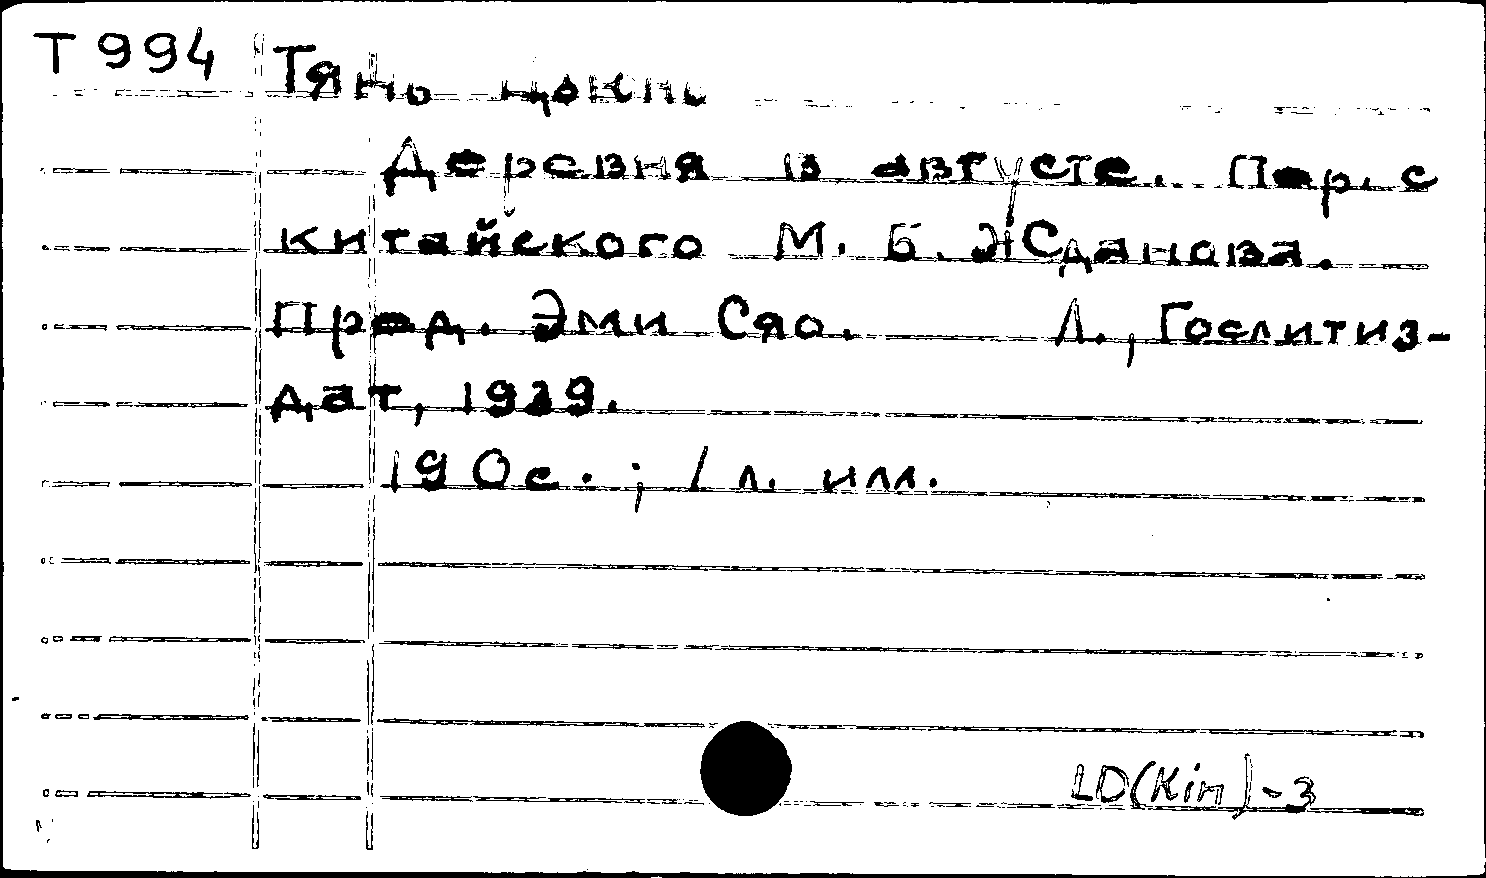 Т 994 Тянь Цзюнь
Деревня в августе. Пер. с
китайского М. Б. Жданова.
Пред. Эми Сяо. Л., Гослитиз-
дат, 1939.
190с. ; 1 л. илл.
LD(Kin)-3